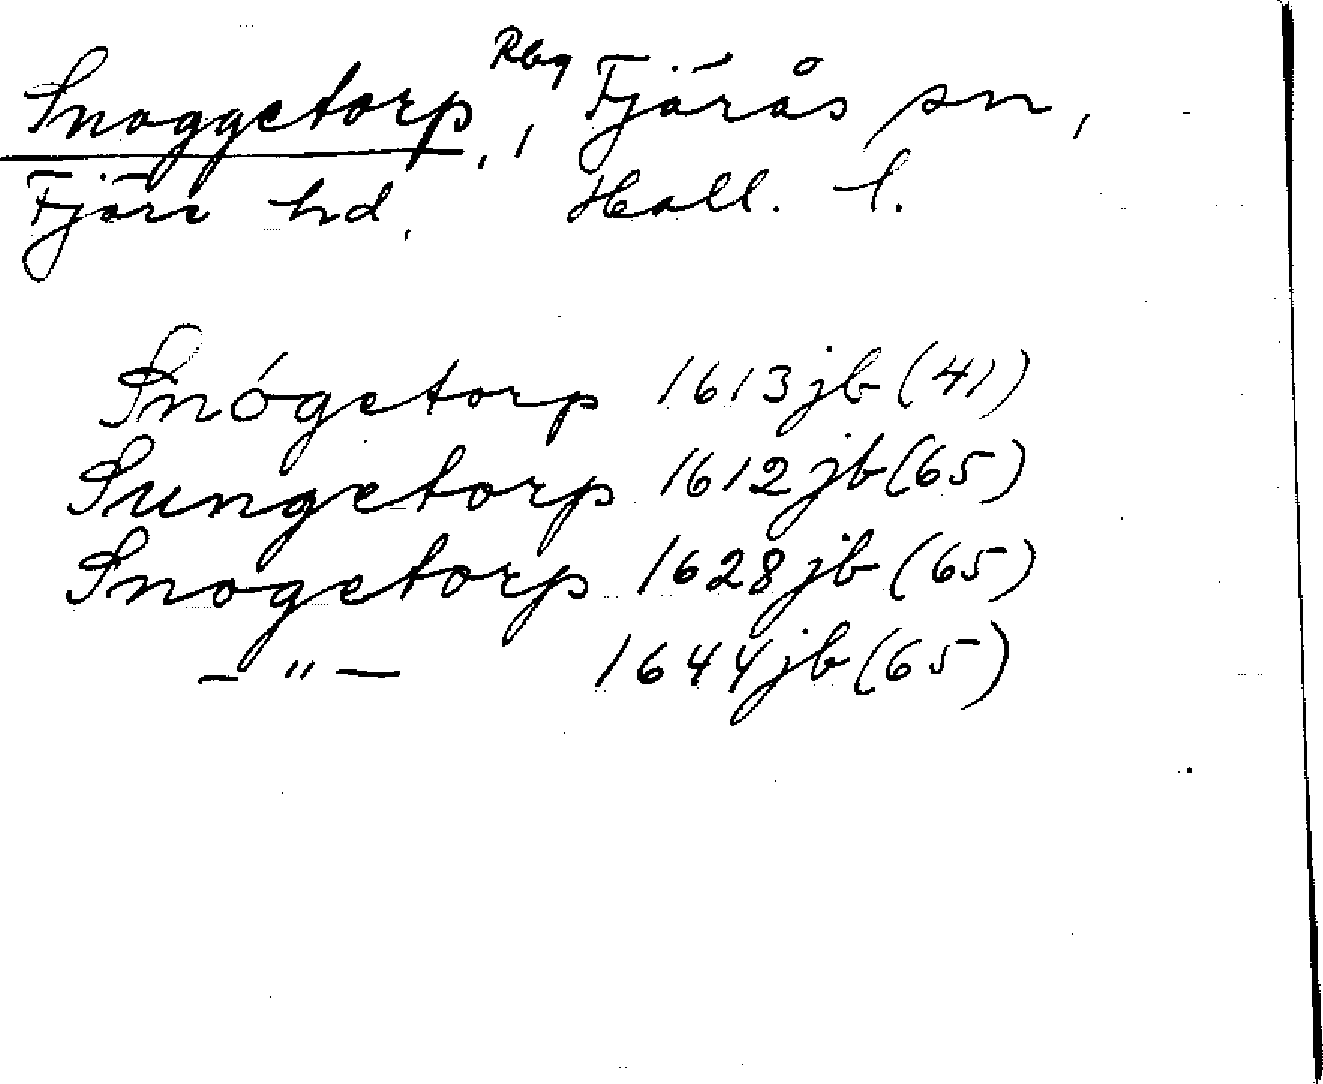 Snoggetorp, Rbg, Fjärås sn,
Fjäre hd, Hall. l.
Snógetorp 1613 jb (41)
Sungetorp 1612 jb (65)
Snogetorp 1628 jb (65)
— " — 1644 jb (65)